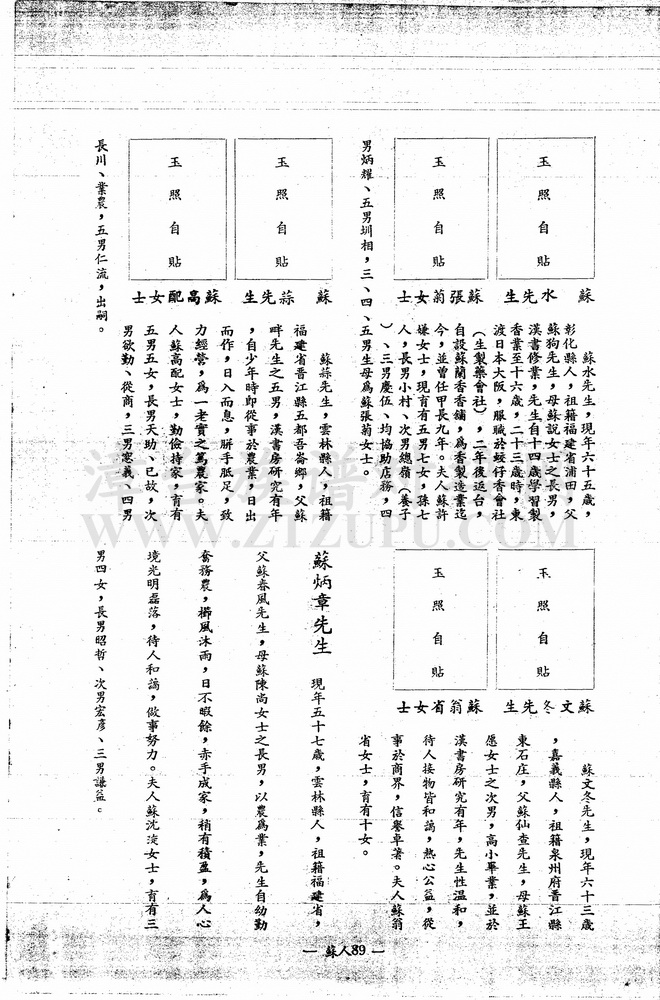 玉照自貼
玉照自貼
蘇水先生
蘇張蒟女士
蘇水先生,現年六十五歲,
彰化縣人,祖籍福建省浦田,父
蘇狗先生,母蘇說女士之長男,
漢書修業,先生自十四歲學習製
香業至十六歲,二十三歲時,東
渡日本大阪,服職於蚊仔香會社
(生製藥會社),二年後返台,
自設蘇蘭香香舖,爲香製造業迄
今,並曾任甲長九年。夫人蘇許
嫌女士,現育有五男七女,孫七
人,長男小村、次男總嶺(養子
)、三男慶伍、均協助店務,四
男炳耀、五男圳相,三、四、五男生母爲蘇張菊女士。
玉照自貼
玉照自貼
蘇蒜先生
蘇高配女士
蘇蒜先生,雲林縣人,祖籍
福建省晋江縣五都吾崙鄉,父蘇
畔先生之五男,漢書房研究有年
,自少年時即從事於農業,日出
而作,日入而息,胼手胝足,致
力經營,爲一老實之篤農家。夫
人蘇高配女士,勤儉持家,育有
五男五女,長男天助、已故,次
男欲勤、從商,三男憲義、四男
長川、業農,五男仁流,出嗣。
玉照自貼
玉照自貼
蘇文冬先生
蘇翁省女士
蘇文冬先生,現年六十三歲
,嘉義縣人,祖籍泉州府晋江縣
東石庄,父蘇仙查先生,母蘇王
愿女士之次男,高小畢業,並於
漢書房研究有年,先生性溫和,
待人接物皆和藹,熱心公益,從
事於商界,信譽卓著。夫人蘇翁
省女士,育有十女。
蘇炳章先生 現年五十七歲,雲林縣人,祖籍福建省,
父蘇春風先生,母蘇陳尚女士之長男,以農爲業,先生自幼勤
奮務農,櫛風沐雨,日不暇餘,赤手成家,稍有積盈,爲人心
境光明磊落,待人和藹,做事努力。夫人蘇沈淩女士,育有三
男四女,長男昭哲、次男宏彥、三男謙益。
— 蘇人89 —
WWW.ZTZUPU.COM